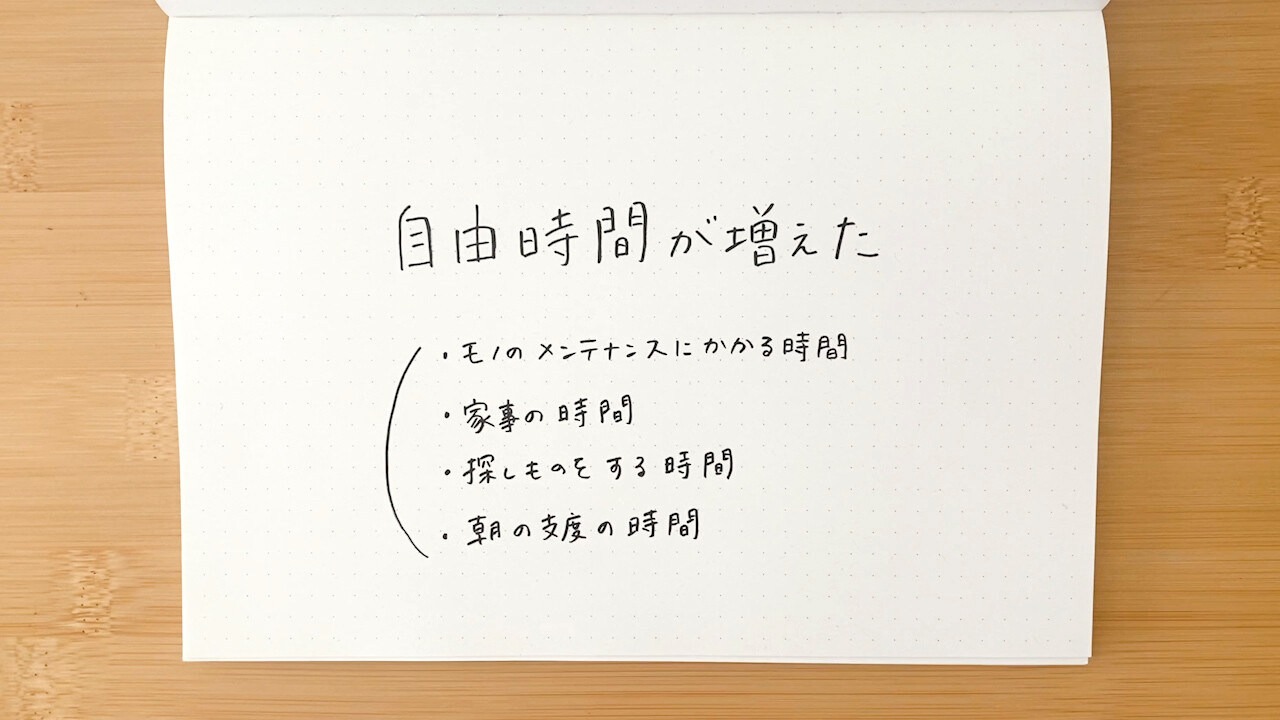 自由時間が増えた
・モノのメンテナンスにかかる時間
・家事の時間
・探しものをする時間
・朝の支度の時間